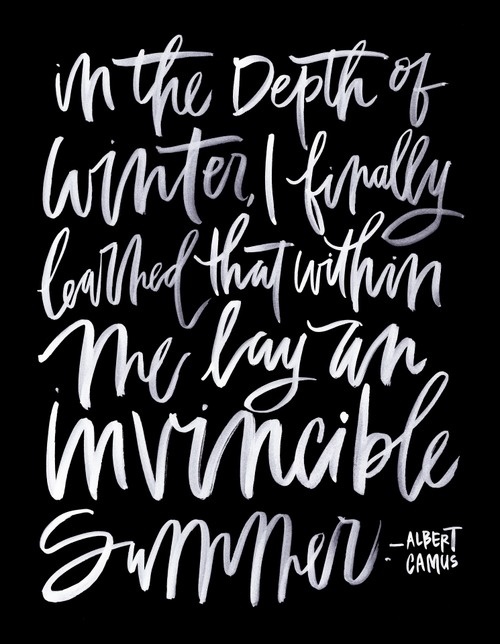 in the Depth of
Winter, I finally
learned that within
me lay an
invincible
Summer
—ALBERT
CAMUS